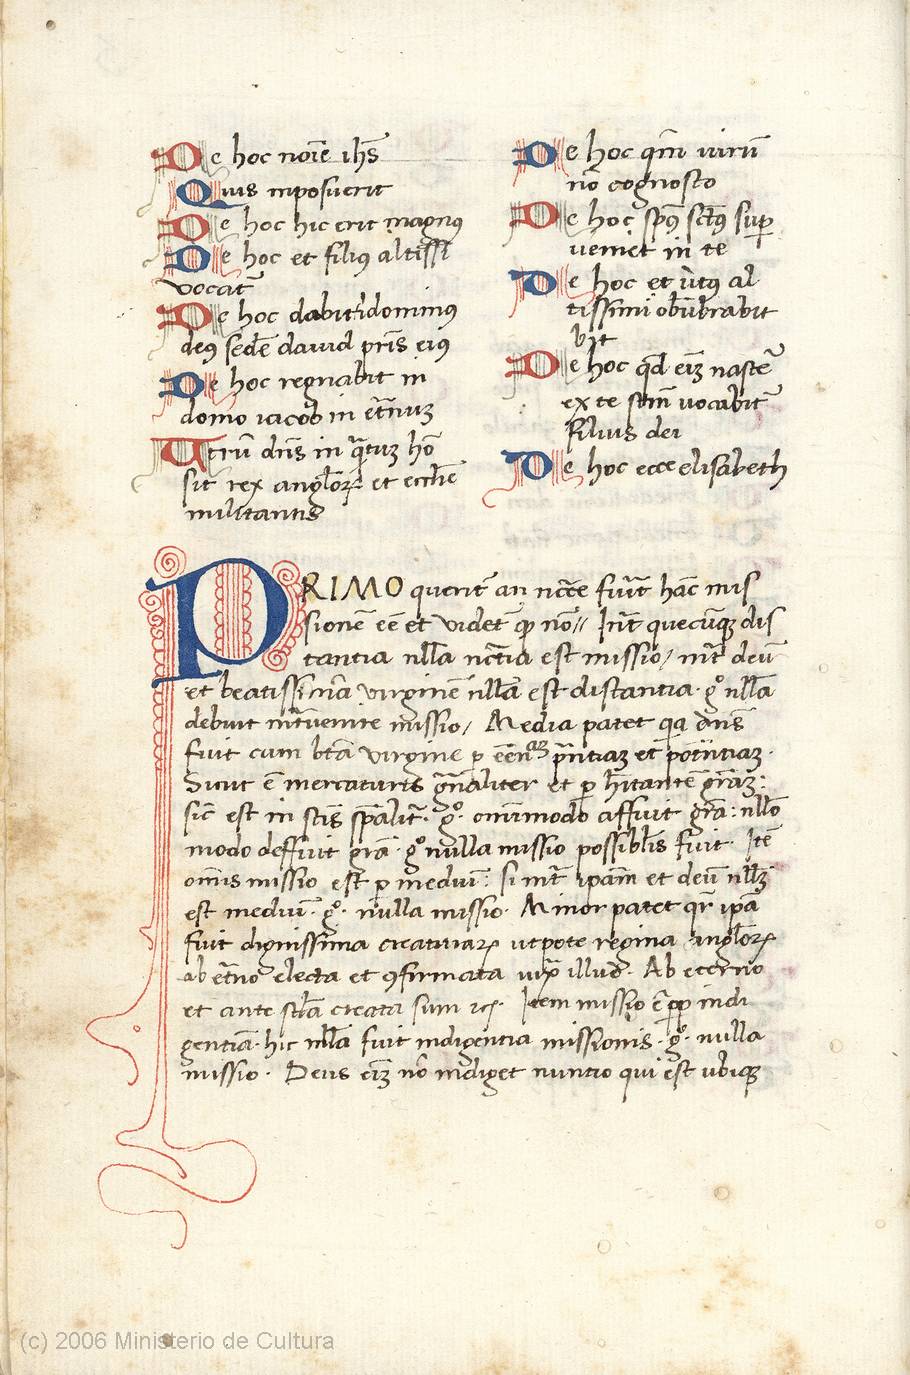 De hoc noīe ihs̄
Quis inposuerit
De hoc hic erit magnus
De hoc et filiꝰ altissi
vocat᷑
De hoc dabit dominus
deꝰ sedē dauid pr̄is eiꝰ
De hoc regnabit in
domo iacob in et̄nuꝫ
Utrū dn̄s in q̄tuꝫ hō
sit rex angl̄oꝝ et eccl̄ie
militantis
De hoc qm̄ uirū
nō cognosco
De hoc sp̄ꝰ sct̄ꝰ suꝑ
ueniet in te
De hoc et ūtꝰ al
tissimi obūbrabit
bit
De hoc qd̄ eīꝫ nascet᷑
ex te sm̄ uocabit᷑
filius dei
De hoc ecce elisabeth
PRIMO querit᷑ an nc̄cē fuīt hāc mis
sionē eē et videt᷑ ꝙ nō// Int̄ quecūqꝫ dis
tantia nl̄la nc̄tīa est missio/ int̄ deū
et beatissimā virginē nl̄la est distantia · gͦ nl̄la
debuit int̄uenire missio/ Media patet qꝛ dn̄s
fuit cum btā virgine ꝑ p̄ntiaꝫ et potētiaꝫ ·
Sicut ē in creaturis gn̄aliter et ꝑ īh̄itantē grāꝫ :
sic̄ est in sctis sp̄alit᷑ · gͦ · omīmodo affuit grā : nl̄lo
modo deffuit grā · gͦ nulla missio possibl̄is fuit · Itē
omīs missio est ꝑ mediū : si int̄ ipām et deū nl̄lꝫ
est mediū · gͦ · nulla missio · Minor patet qꝛ ipā
fuit dignissima creaturaꝝ utpote regina angl̄oꝝ
ab et̄no electa et ꝯfirmata iuxͣ illud · Ab eterno
et ante scl̄a creata sum ⁊cꝭ · Item missio ē ꝓpꝑ indi
gentiā · hic nl̄la fuit indigentia missionis · gͦ · nulla
missio · Deus eīꝫ nō indiget nuntio qui est ubiqꝫ
(c) 2006 Ministerio de Cultura